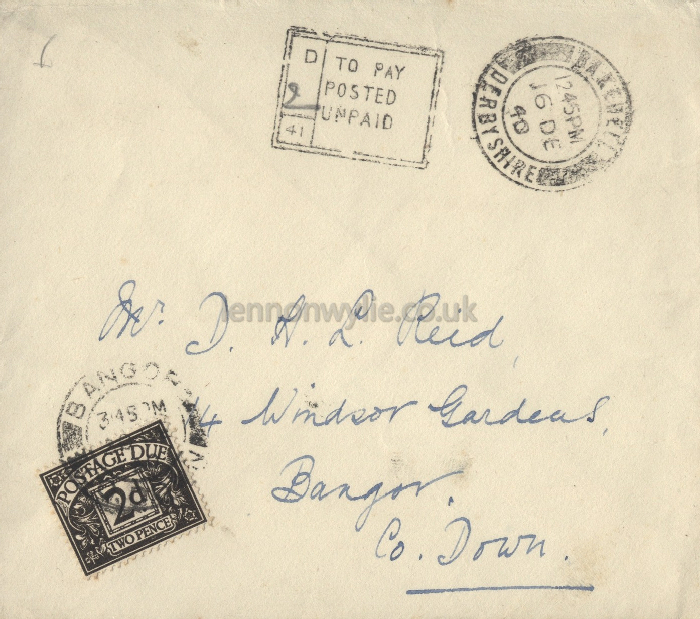 D TO PAY
2 POSTED
41 UNPAID
BAKEWELL
1245PM
16 DE
40
DERBYSHIRE
lennonwylie.co.uk
Mr. D. H. L. Reid,
14 Windsor Gardens,
Bangor,
Co. Down.
BANGOR
345PM
POSTAGE DUE
2d
TWO PENCE